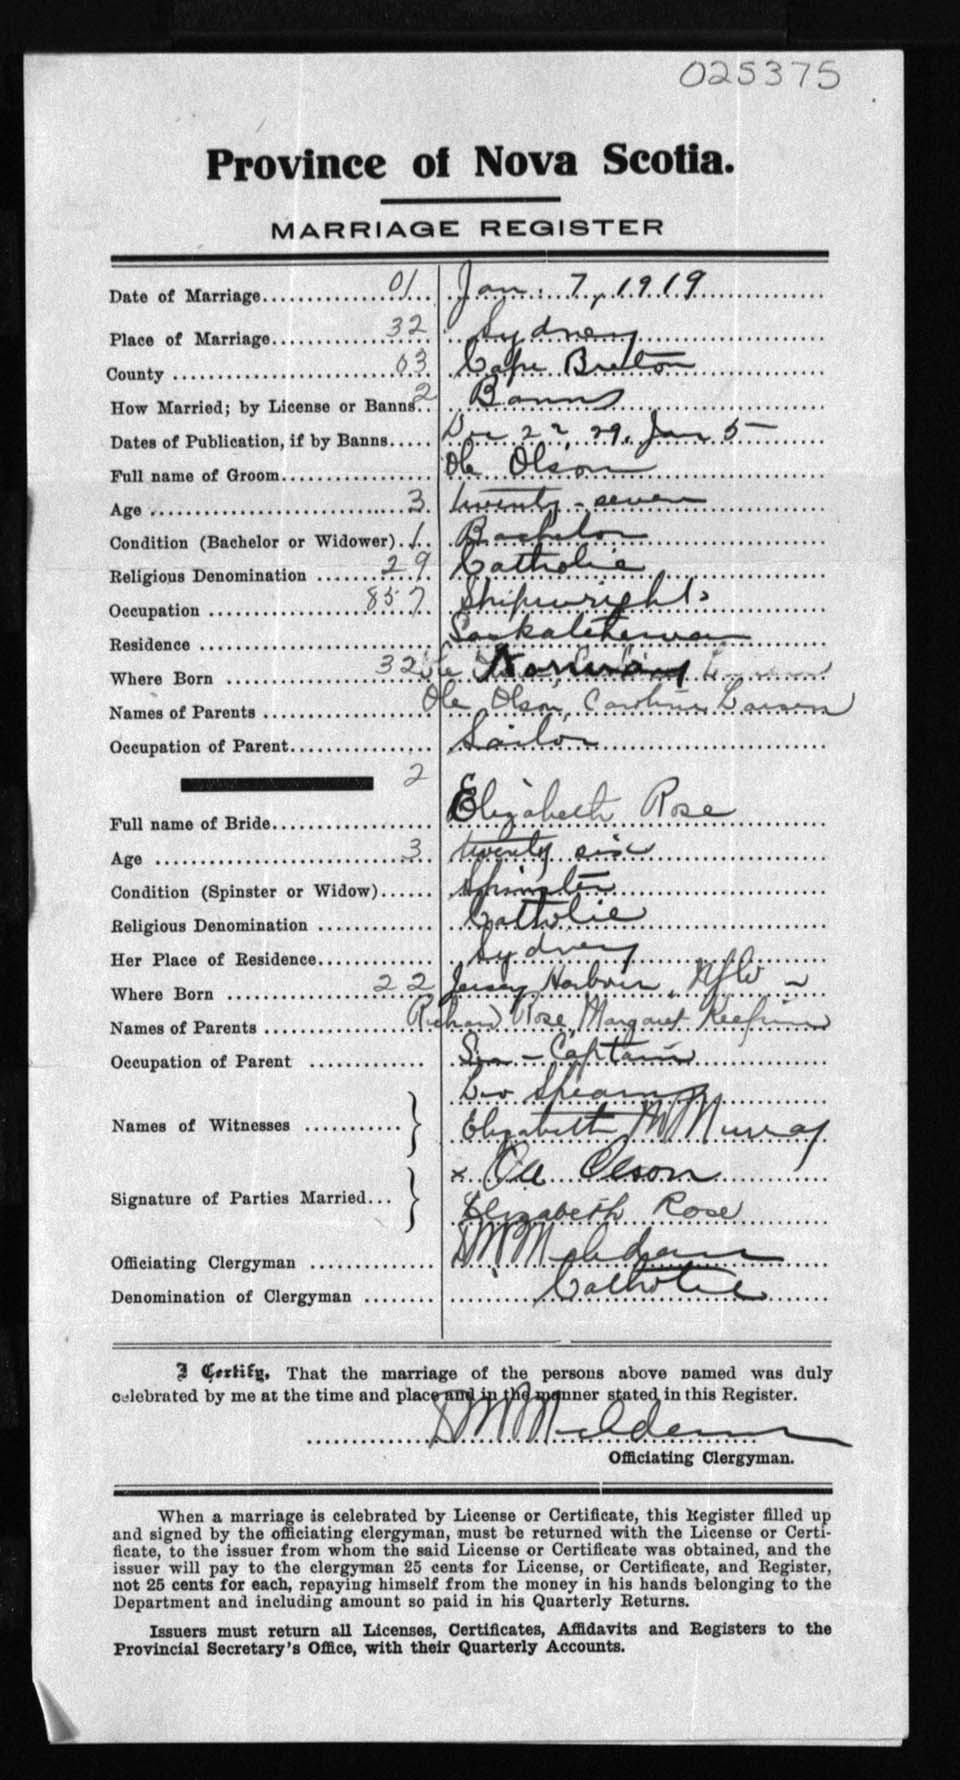 025375
Province of Nova Scotia.
MARRIAGE REGISTER
Date of Marriage 01 Jan. 7, 1919
Place of Marriage 32 Sydney
County 03 Cape Breton
How Married; by License or Banns 2 Banns
Dates of Publication, if by Banns Dec 22, 29, Jan 5
Full name of Groom Ole Olson
Age 3 twenty-seven
Condition (Bachelor or Widower) 1 Bachelor
Religious Denomination 29 Catholic
Occupation 857 Shipwright
Residence Saskatchewan
Where Born 32 Norway
Names of Parents Ole Olson, Caroline Larsen
Occupation of Parent Sailor
2
Full name of Bride Elizabeth Rose
Age 3 twenty six
Condition (Spinster or Widow) Spinster
Religious Denomination Catholic
Her Place of Residence Sydney
Where Born 22 Jersey Harbour, Nfld
Names of Parents Richard Rose, Margaret
Occupation of Parent Sea-Captain
Leo
Names of Witnesses Elizabeth McMurray
x Ole Olson
Signature of Parties Married
Elizabeth Rose
Officiating Clergyman
Denomination of Clergyman Catholic
I Certify, That the marriage of the persons above named was duly
celebrated by me at the time and place and in the manner stated in this Register.
Officiating Clergyman.
When a marriage is celebrated by License or Certificate, this Register filled up
and signed by the officiating clergyman, must be returned with the License or Certi-
ficate, to the issuer from whom the said License or Certificate was obtained, and the
issuer will pay to the clergyman 25 cents for License, or Certificate, and Register,
not 25 cents for each, repaying himself from the money in his hands belonging to the
Department and including amount so paid in his Quarterly Returns.
Issuers must return all Licenses, Certificates, Affidavits and Registers to the
Provincial Secretary's Office, with their Quarterly Accounts.